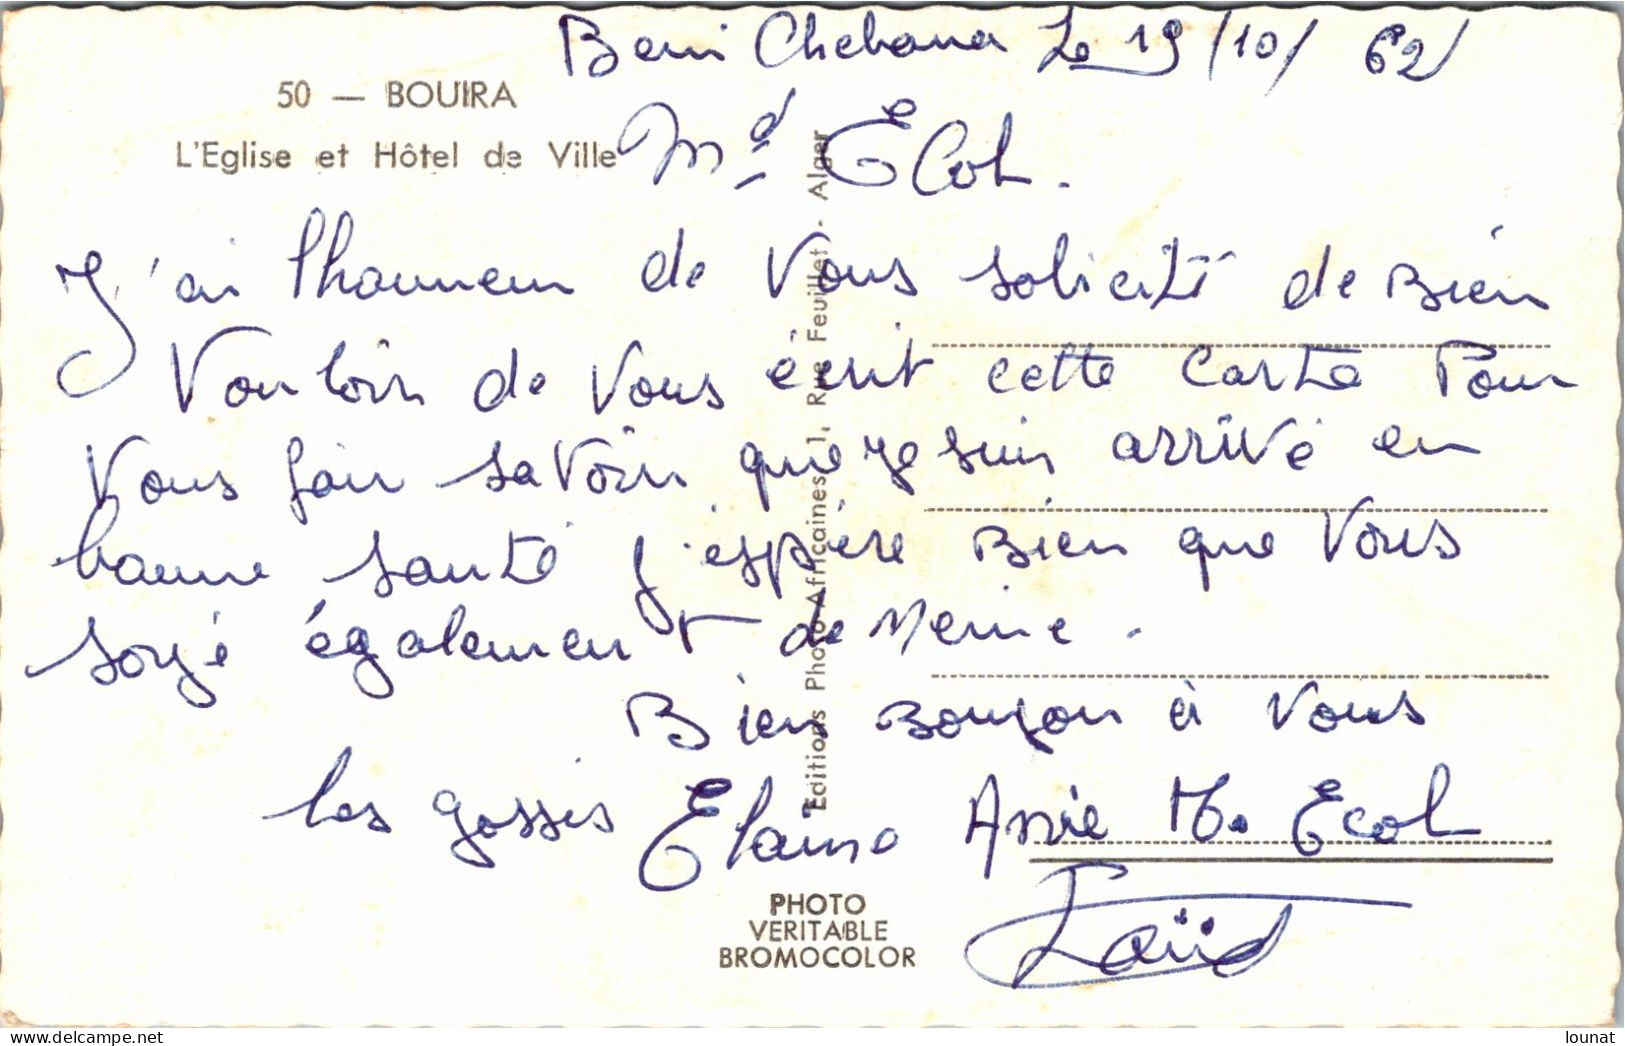 Beni Chebana Le 19/10/62
50 — BOUIRA
L'Eglise et Hôtel de Ville
Md Ecol.
J'ai lhonneur de Vous solicité de Bien
Vouloir de Vous écrit cette Carte Pour
Vous fair saVoir que je suis arrivé en
bonne santé j'éspère Bien que Vous
soryé également de Meme.
Bien Bonjon à Vous
les gosses Elaine Annie M. Ecol
Saïd
Editions Photo-Africaines, 1, Rue Feuillet - Alger
PHOTO
VERITABLE
BROMOCOLOR
delcampe.net
lounat